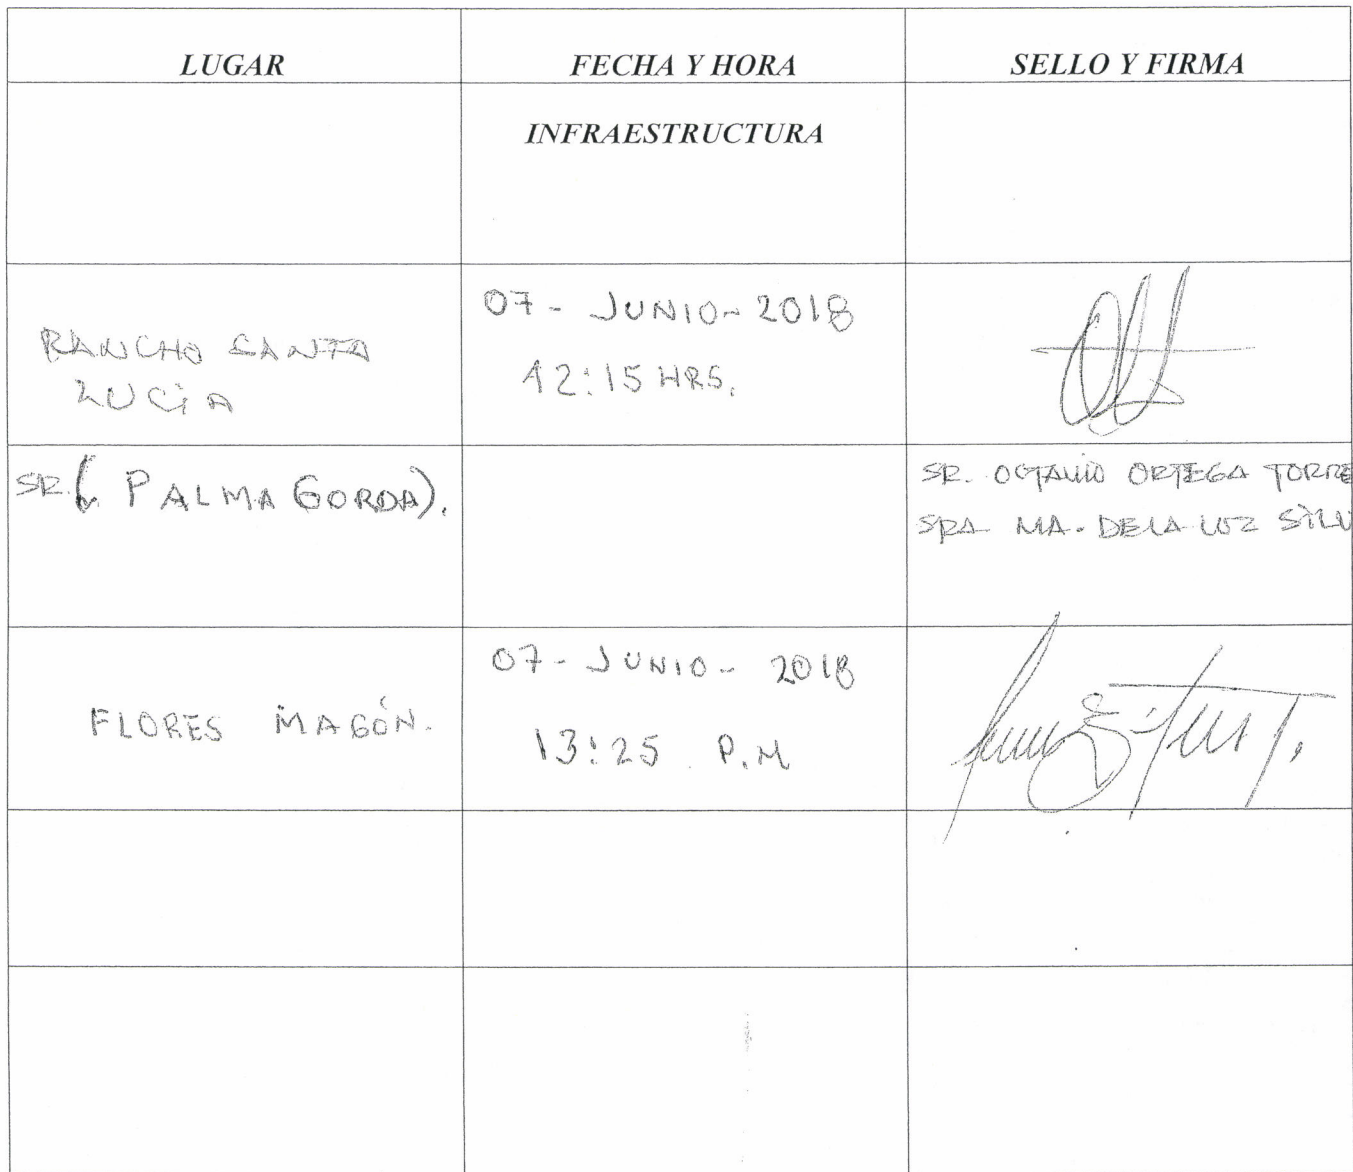 LUGAR FECHA Y HORA SELLO Y FIRMA
INFRAESTRUCTURA
RANCHO SANTA
LUCÍA
07 - JUNIO - 2018
12:15 HRS.
SR. ( PALMA GORDA).
SR. OCTAVIO ORTEGA TORRE
SRA MA. DE LA LUZ SILV
FLORES MAGÓN.
07 - JUNIO - 2018
13:25 P.M